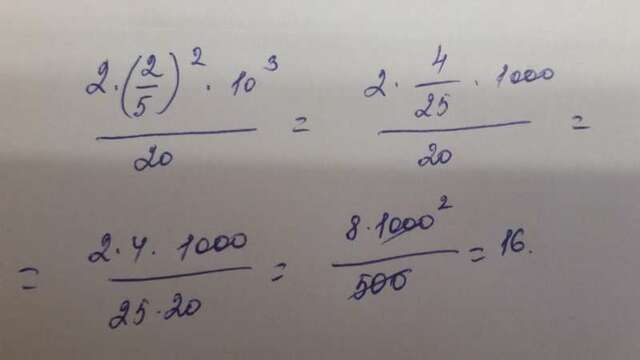 2·(2/5)²·10³/20 = 2·4/25·1000/20 =
= 2·4·1000/25·20 = 8·1000²/500 = 16.